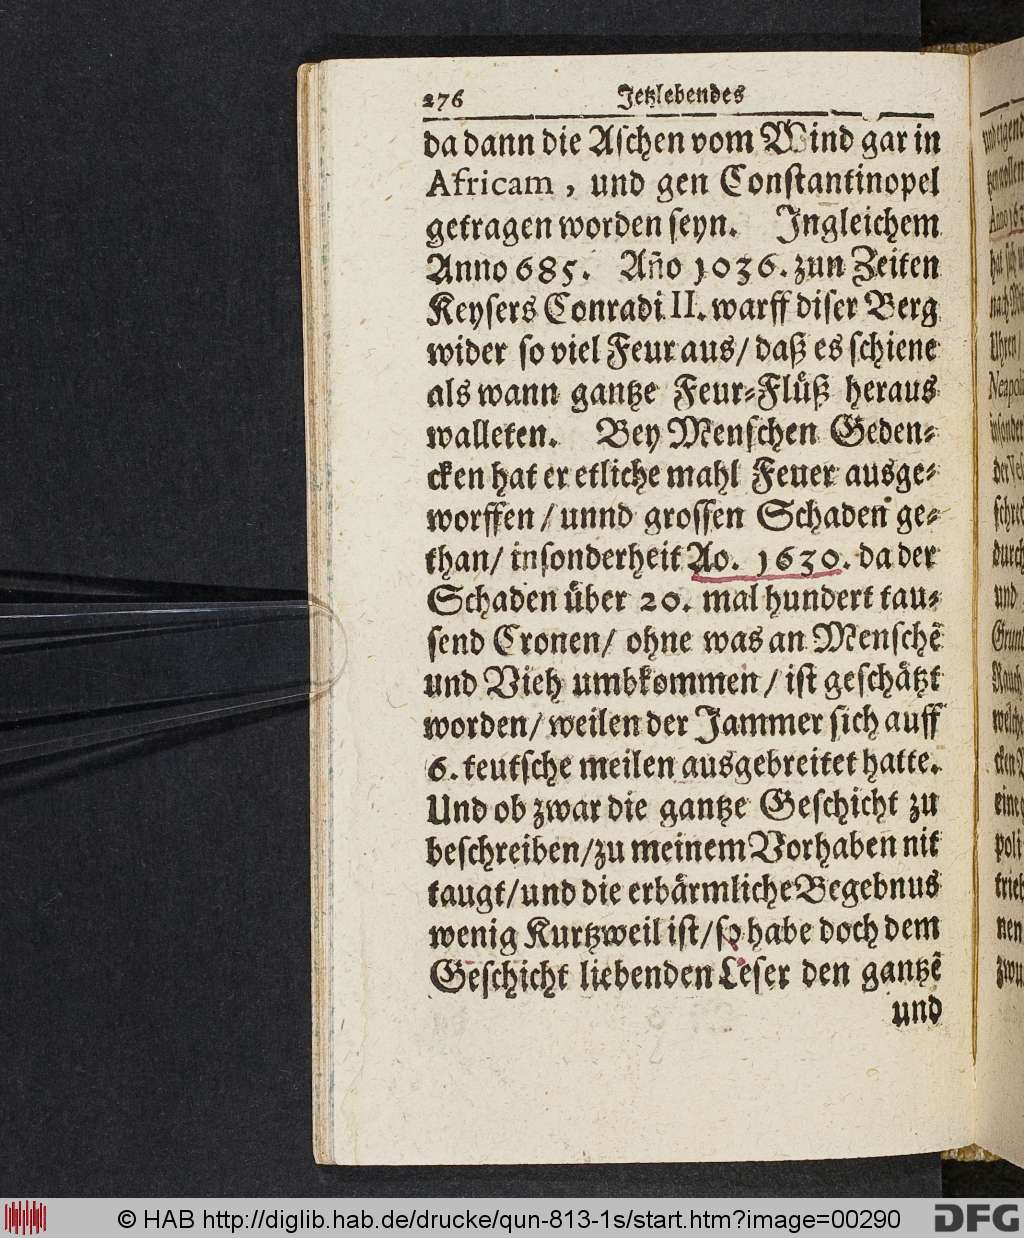 276 Jetzlebendes
da dann die Aschen vom Wind gar in
Africam, und gen Constantinopel
getragen worden seyn. Ingleichem
Anno 685. Año 1036. zun Zeiten
Keysers Conradi II. warff diser Berg
wider so viel Feur aus/ daß es schiene
als wann gantze Feur-Flüß heraus
walleten. Bey Menschen Geden-
cken hat er etliche mahl Feuer ausge-
worffen / unnd grossen Schaden ge-
than/ insonderheit Ao. 1630. da der
Schaden über 20. mal hundert tau-
send Cronen/ ohne was an Menschẽ
und Vieh umbkommen / ist geschätzt
worden/ weilen der Jammer sich auff
6. teutsche meilen ausgebreitet hatte.
Und ob zwar die gantze Geschicht zu
beschreiben/zu meinem Vorhaben nit
taugt/und die erbärmliche Begebnus
wenig Kurtzweil ist/so habe doch dem
Geschicht liebenden Leser den gantzẽ
und
© HAB http://diglib.hab.de/drucke/qun-813-1s/start.htm?image=00290
DFG